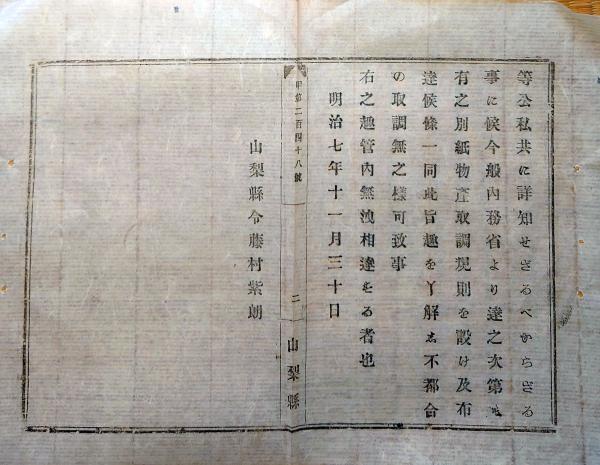 等公私共に詳知せざるべからざる
事に候今般内務省より達之次第も
有之別紙物産取調規則を設け及布
達候條一同此旨趣を了解し不都合
の取調無之樣可致事
右之趣管內無洩相達する者也
明治七年十一月三十日
甲第二百四十八號
二
山梨縣
山梨縣令藤村紫朗